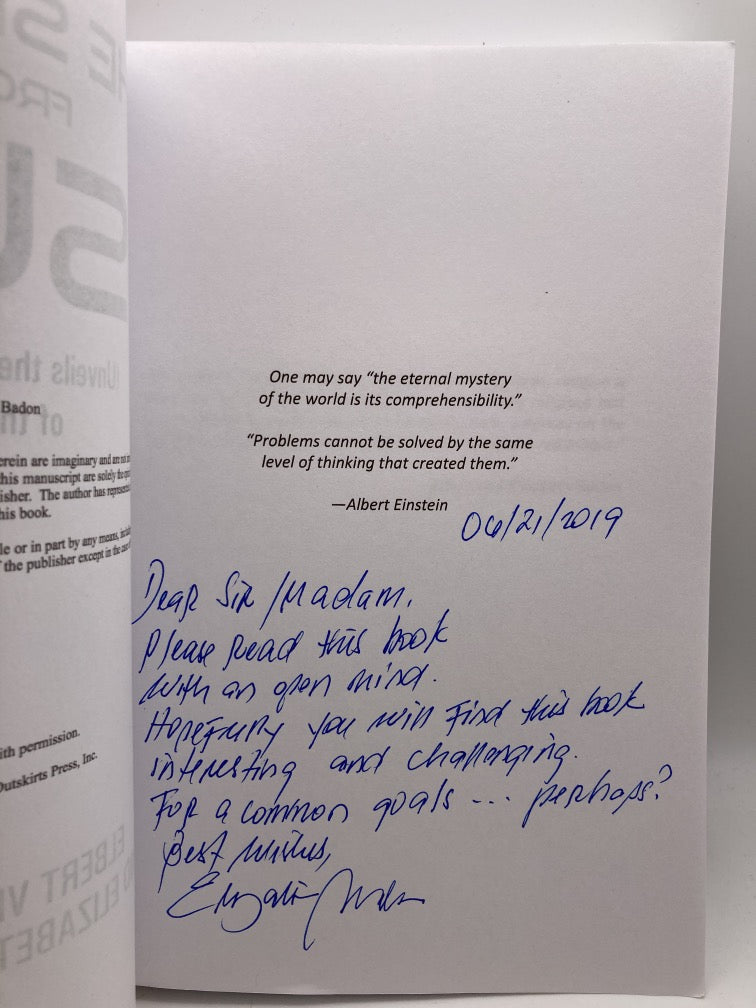 Badon
erein are imaginary and
his manuscript are solely the
isher. The author has
his book.
le or in part by any means,
the publisher except in the
ith permission.
utskirts Press, Inc.
One may say “the eternal mystery
of the world is its comprehensibility.”
“Problems cannot be solved by the same
level of thinking that created them.”
—Albert Einstein
06/21/2019
Dear Sir/Madam,
Please Read this book
with an open mind.
Hopefully you will find this book
interesting and challenging.
For a common goals ... perhaps?
Best wishes,